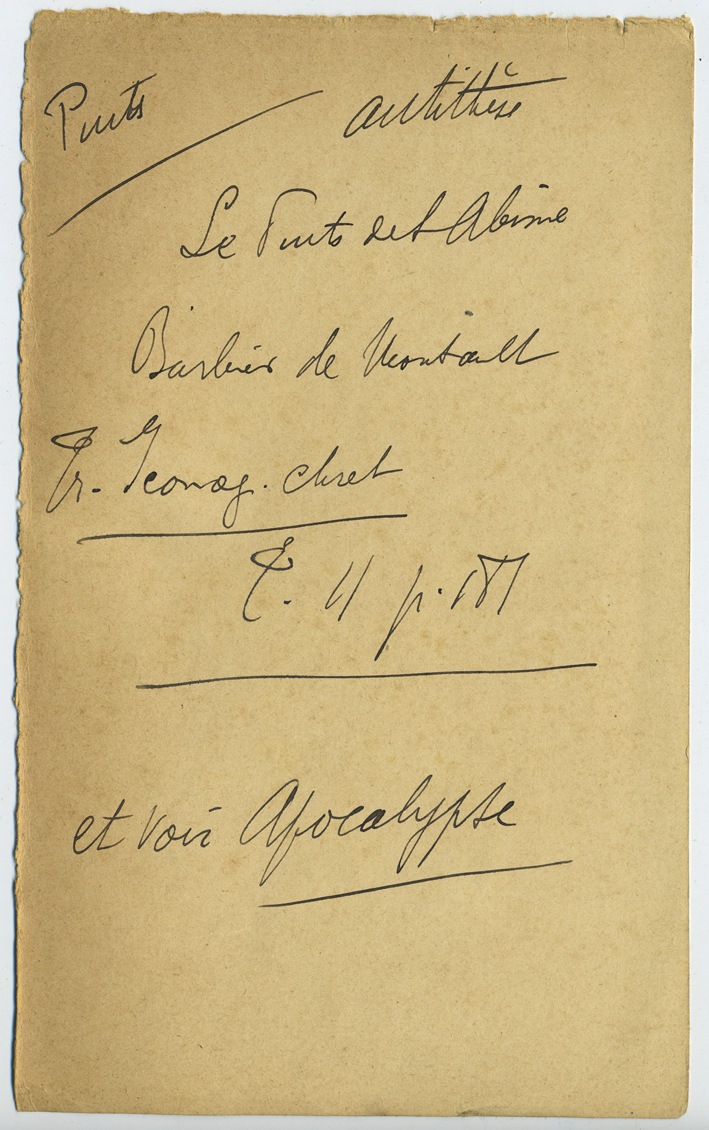 Puits antithèse
Le Puits de l'Abime
Barbier de Montault
Tr. Iconog. chret
T. II p. 187
et voir Apocalypse